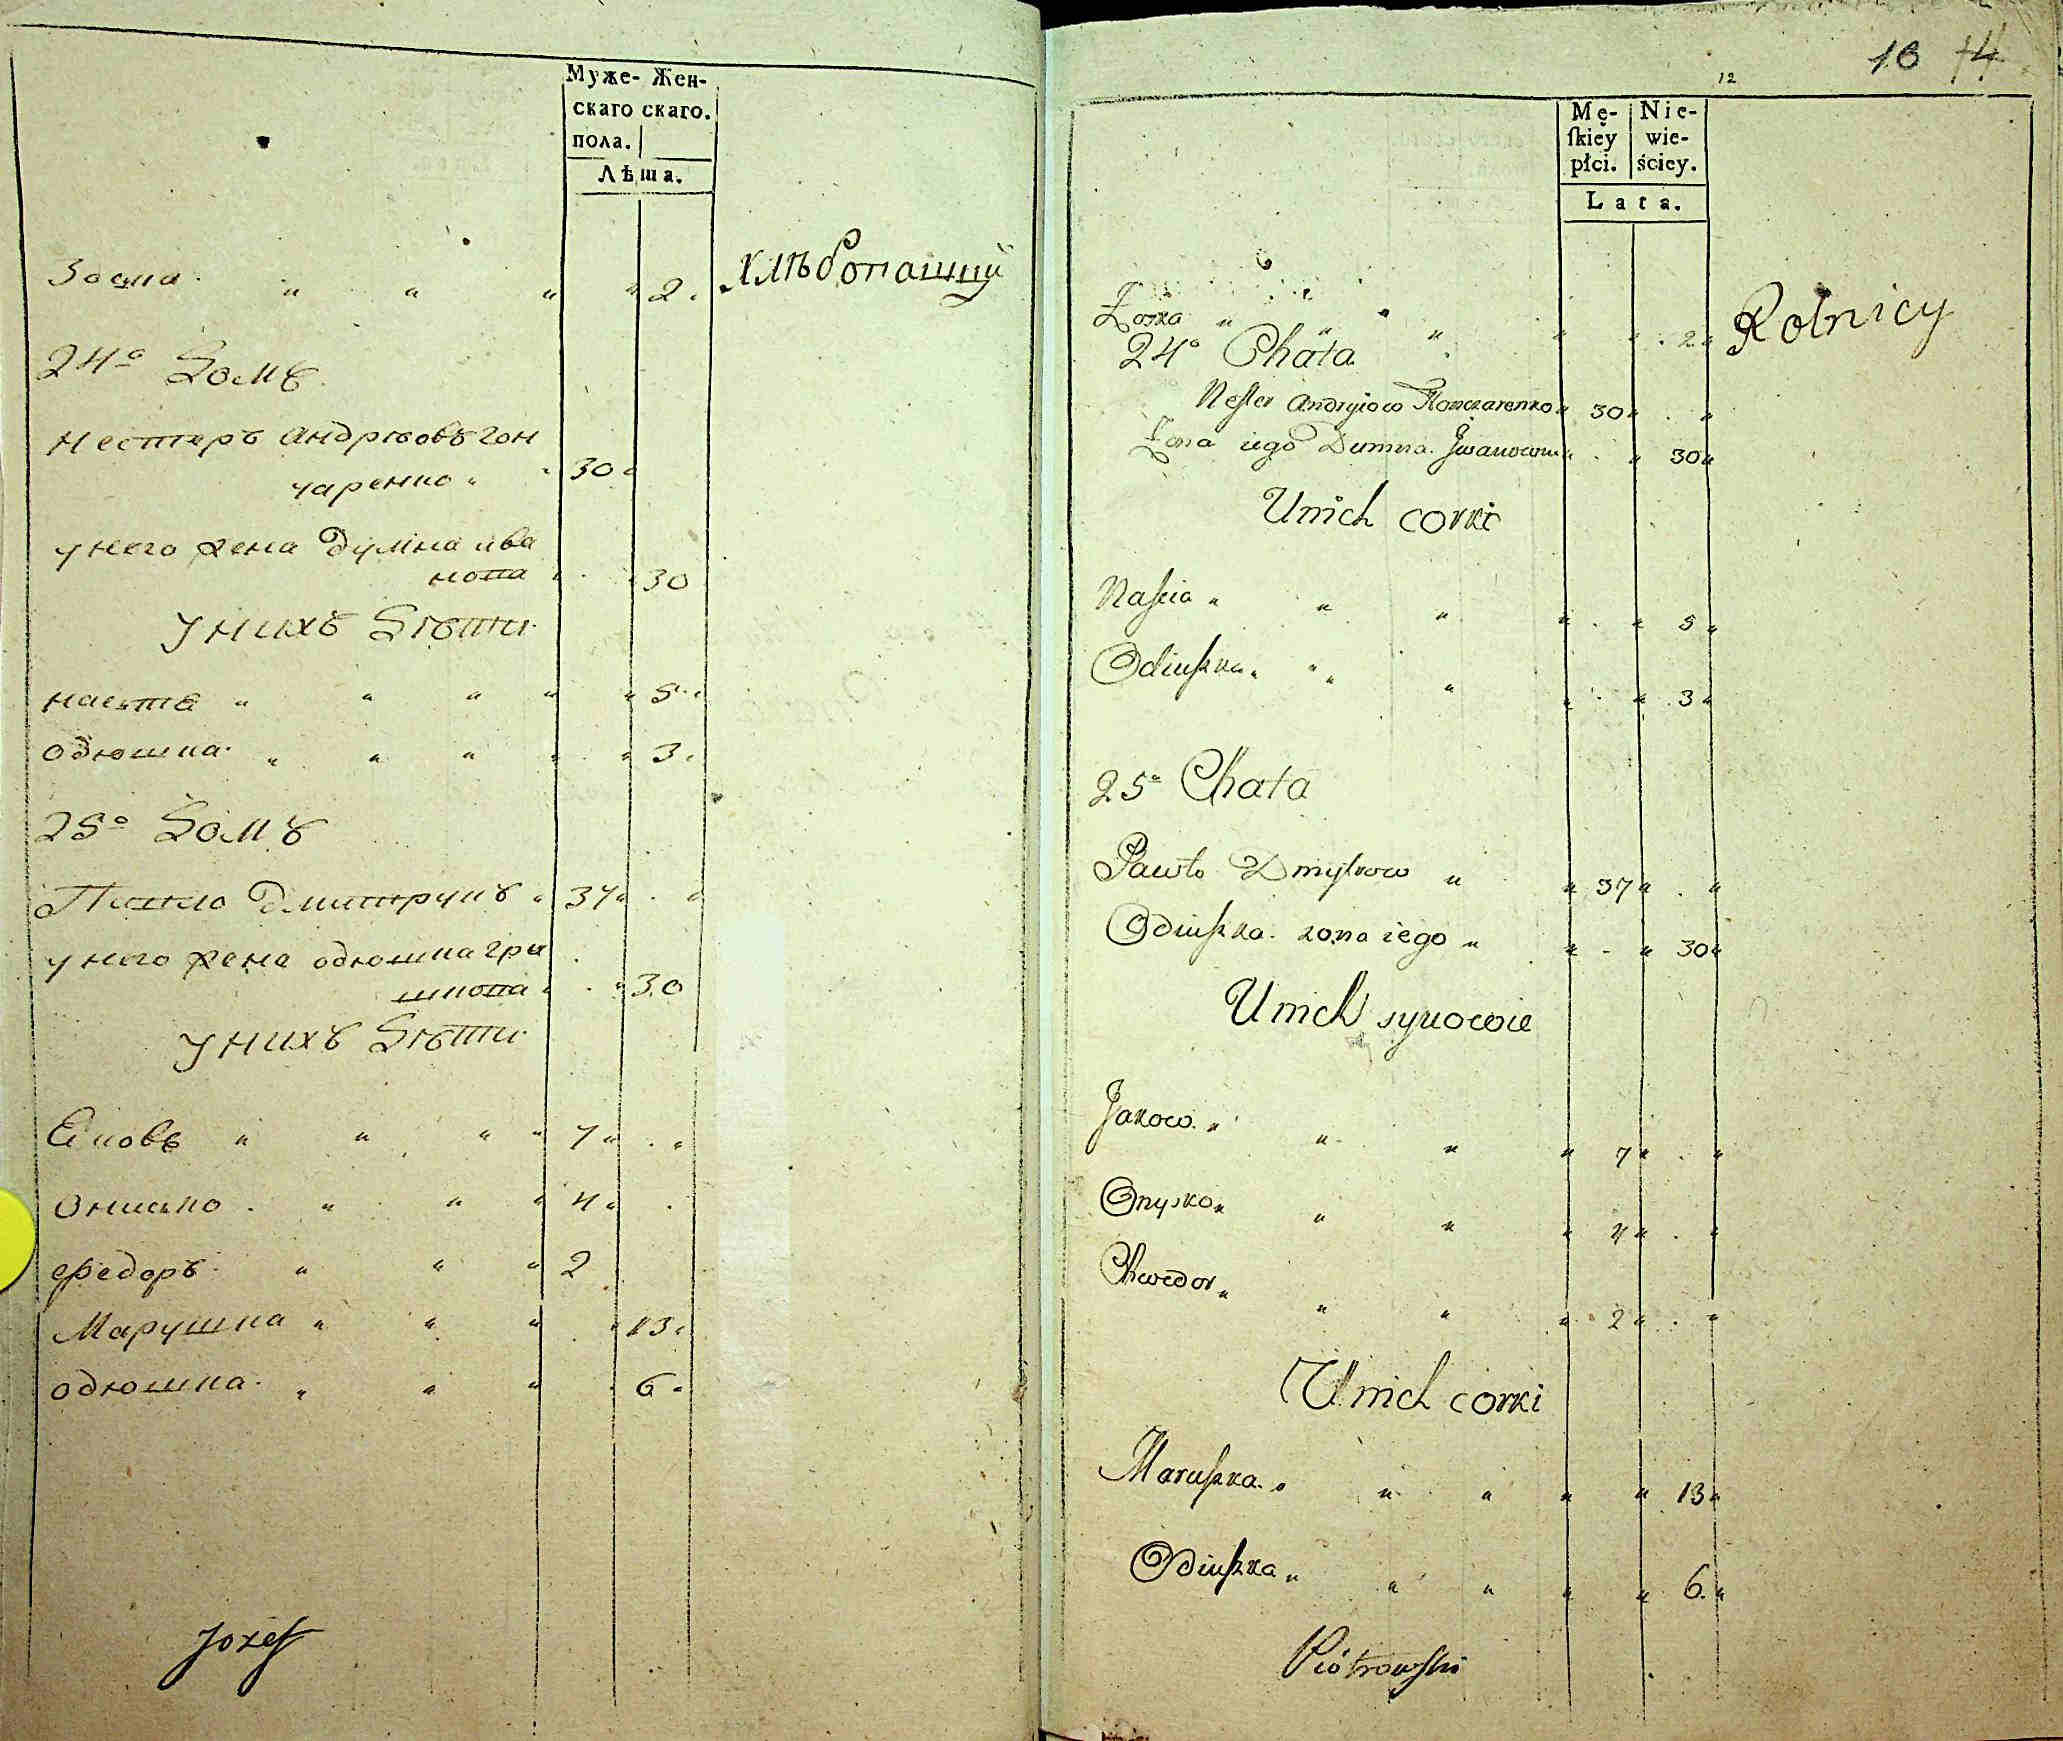 Муже- Жен-
скаго скаго.
пола.
Лѣта.
Зоѳка " " " " 2. хлѣбопашцы
24º Домъ
Нестеръ андрѣовъ гон
чаренко " " 30 "
у него жена думна ива
нова " . " 30
У нихъ Дѣти
настя " " " " " 5 "
одюшка. " " " " " 3.
25º Домъ
Павло дмитрукъ " 37 " . "
у него жена одюшка гри
шкова " . " 30
У нихъ Дѣти
Яковъ " " " " 7 " . "
Онисько . " " " 4 " .
федоръ " " " 2
Марушка " " " . " 13 "
одюшка. " " " . 6 "
Jozef
16 14
12
Mę- Nie-
ſkiey wie-
płci. ściey.
Lata.
Zoska " " " " " " . 2 " Rolnicy
24º Chata
Nester Andryiow Honczarenko " 30 " . "
Żona iego Dumna Jwanowna " . " 30 "
U nich corki
Naścia " " " " . " 5 "
Odiuszka " " " " . " 3 "
25º Chata
Pawło Dmytrow " " 37 " . "
Odiuszka. zona iego " " - " 30 "
U nich synowie
Jakow. " " " " 7 " . "
Onysko " " " " 4 " . "
Chwedor " " " " 2 " . "
U nich corki
Maruszka. " " " " " 13 "
Odiuszka " " " " " 6. "
Piotrowski